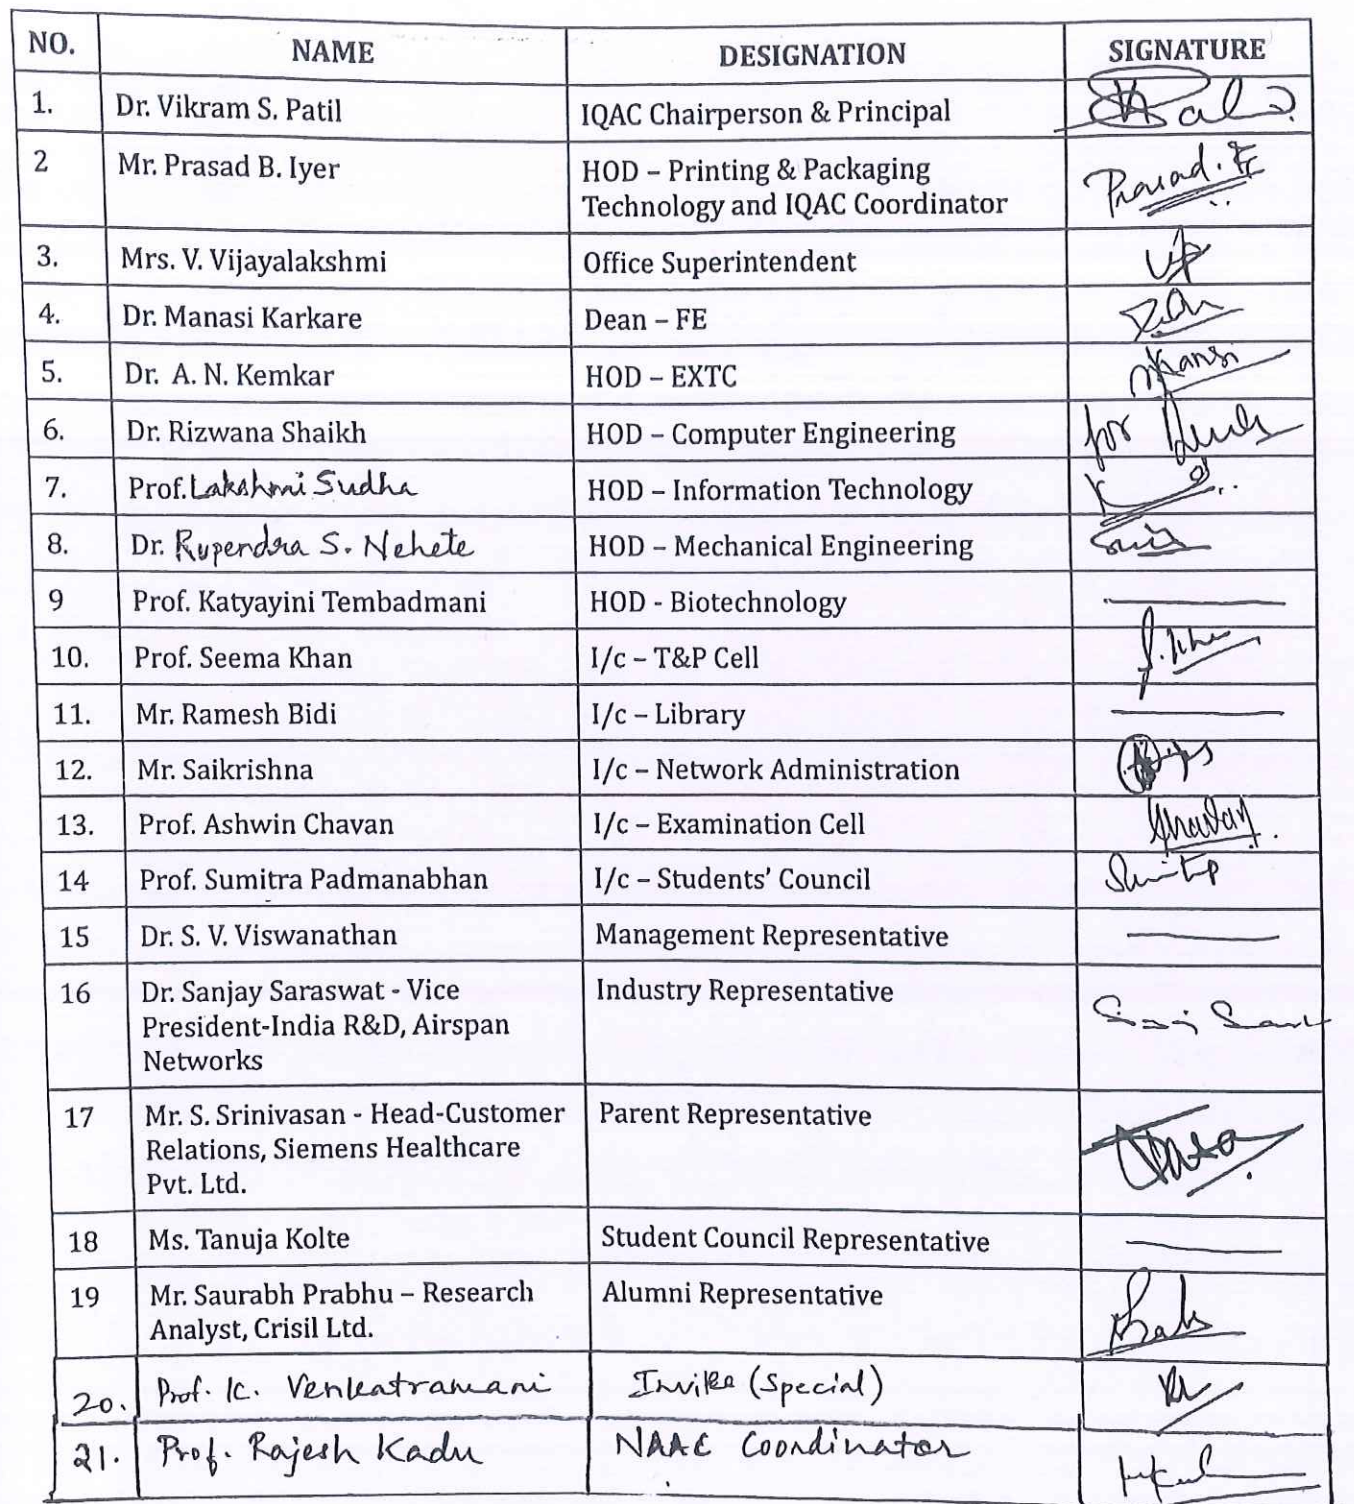 NO. NAME DESIGNATION SIGNATURE
1. Dr. Vikram S. Patil IQAC Chairperson & Principal
2 Mr. Prasad B. Iyer HOD – Printing & Packaging
Technology and IQAC Coordinator
Prasad.
3. Mrs. V. Vijayalakshmi Office Superintendent
4. Dr. Manasi Karkare Dean – FE
5. Dr. A. N. Kemkar HOD – EXTC
6. Dr. Rizwana Shaikh HOD – Computer Engineering for
7. Prof. Lakshmi Sudha HOD – Information Technology
8. Dr. Rupendra S. Nehete HOD – Mechanical Engineering
9 Prof. Katyayini Tembadmani HOD - Biotechnology
10. Prof. Seema Khan I/c – T&P Cell
11. Mr. Ramesh Bidi I/c – Library
12. Mr. Saikrishna I/c – Network Administration
13. Prof. Ashwin Chavan I/c – Examination Cell
14 Prof. Sumitra Padmanabhan I/c – Students' Council
15 Dr. S. V. Viswanathan Management Representative
16 Dr. Sanjay Saraswat - Vice Industry Representative
President-India R&D, Airspan
Networks
17 Mr. S. Srinivasan - Head-Customer Parent Representative
Relations, Siemens Healthcare
Pvt. Ltd.
18 Ms. Tanuja Kolte Student Council Representative
19 Mr. Saurabh Prabhu – Research Alumni Representative
Analyst, Crisil Ltd.
20. Prof. K. Venkatramani Invitee (Special)
21. Prof. Rajesh Kadu NAAC Coordinator